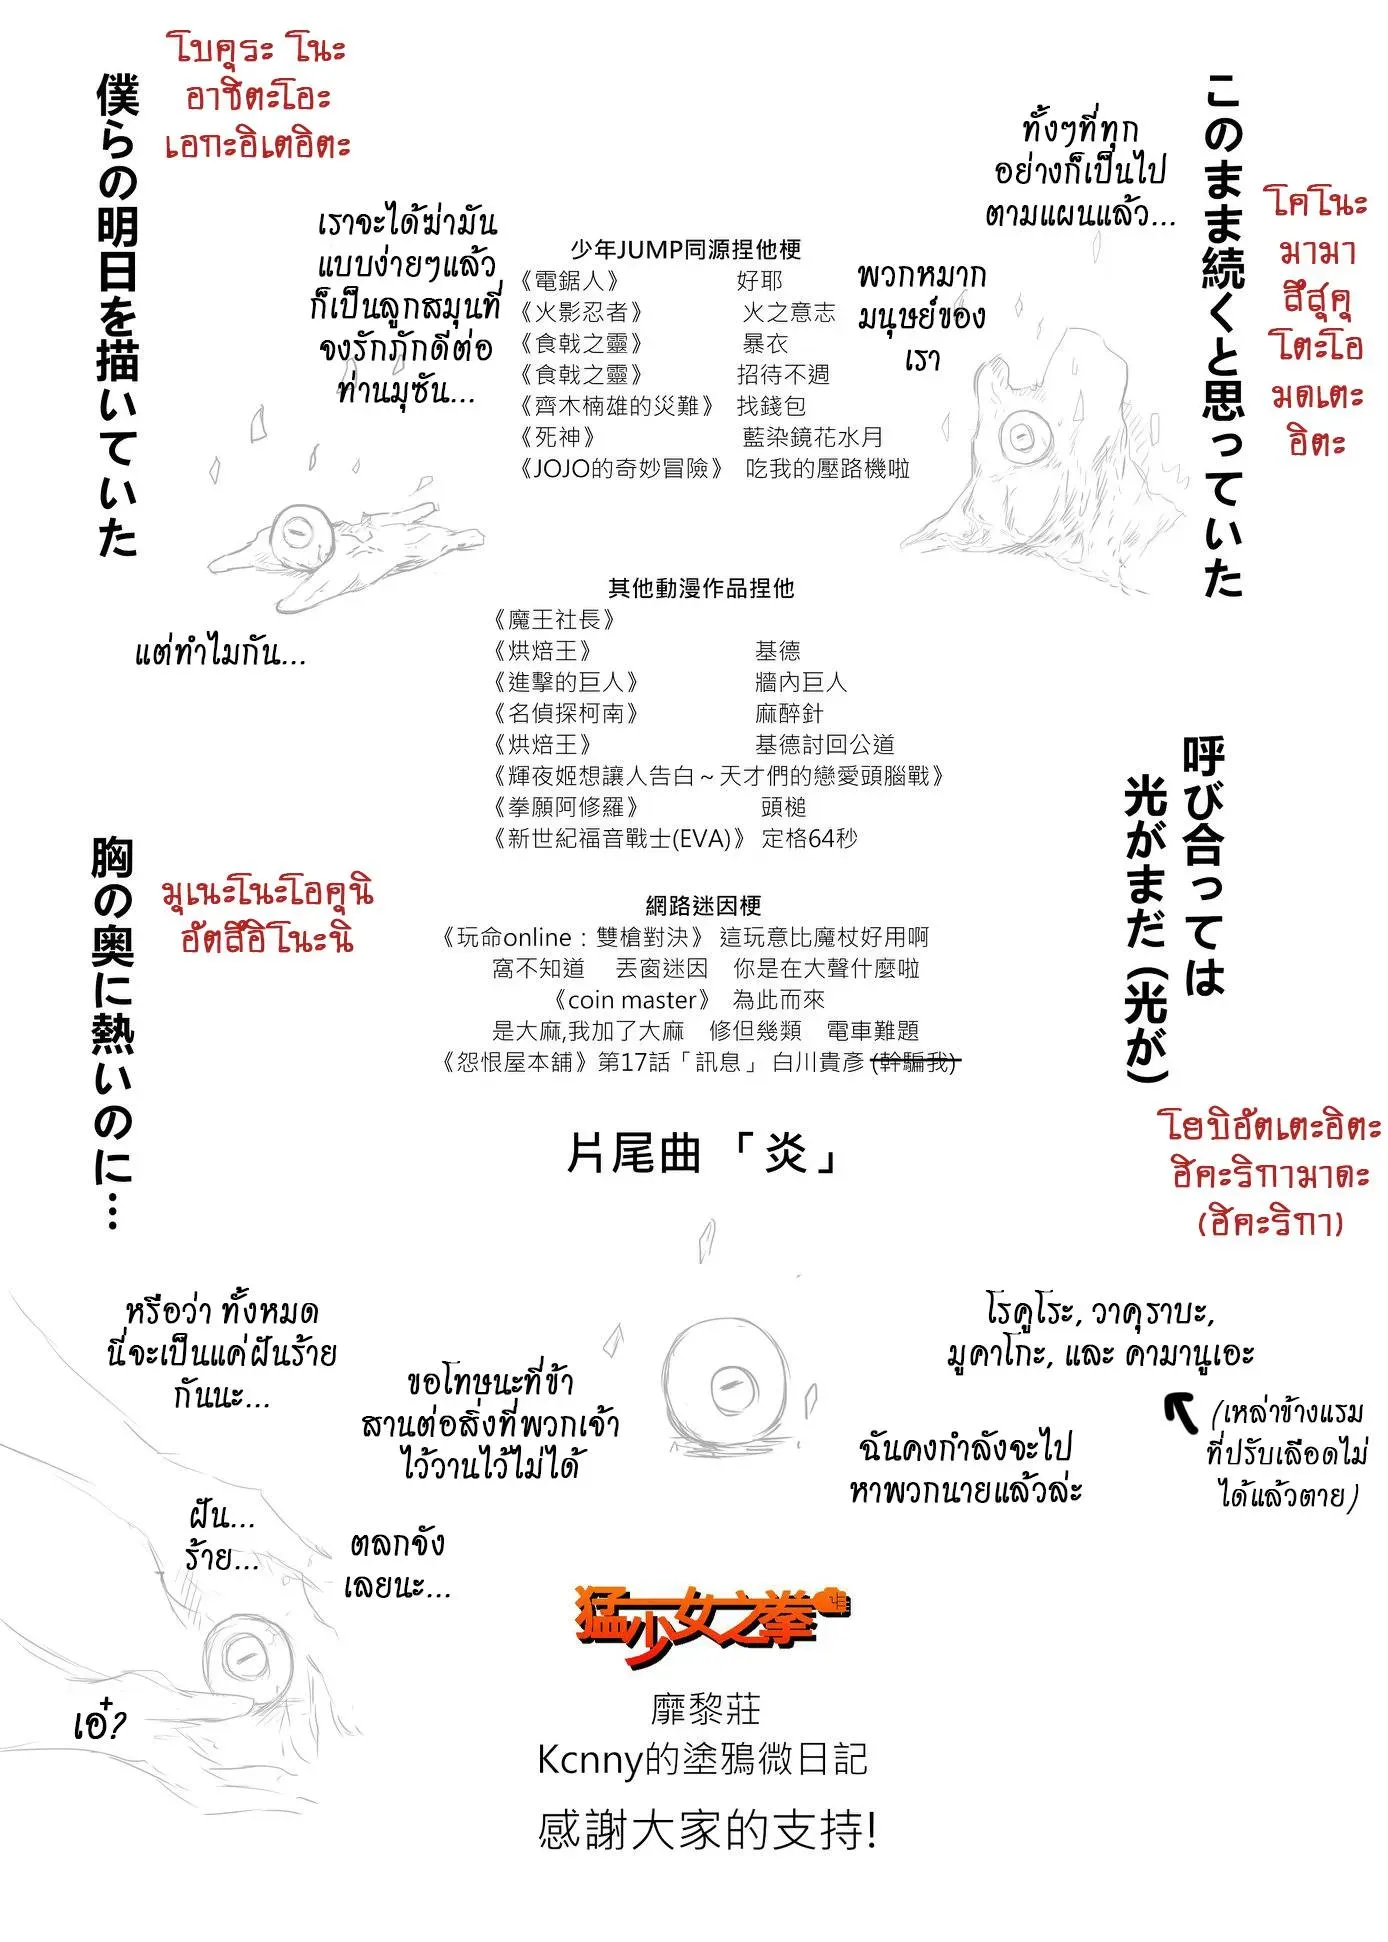 โบคุระ โนะ
อาชิตะโอะ
เอกะอิเตอิตะ
僕らの明日を描いていた
このまま続くと思っていた
ทั้งๆที่ทุก
อย่างก็เป็นไป
ตามแผนแล้ว...
โคโนะ
มามา
สึสุคุ
โตะโอ
มดเตะ
อิตะ
เราจะได้ฆ่ามัน
แบบง่ายๆแล้ว
ก็เป็นลูกสมุนที่
จงรักภักดีต่อ
ท่านมุซัน...
พวกหมาก
มนุษย์ของ
เรา
少年JUMP同源捏他梗
《電鋸人》 好耶
《火影忍者》 火之意志
《食戟之靈》 暴衣
《食戟之靈》 招待不週
《齊木楠雄的災難》 找錢包
《死神》 藍染鏡花水月
《JOJO的奇妙冒險》 吃我的壓路機啦
แต่ทำไมกัน...
其他動漫作品捏他
《魔王社長》
《烘焙王》 基德
《進擊的巨人》 牆內巨人
《名偵探柯南》 麻醉針
《烘焙王》 基德討回公道
《輝夜姬想讓人告白～天才們的戀愛頭腦戰》
《拳願阿修羅》 頭槌
《新世紀福音戰士(EVA)》 定格64秒
呼び合っては
光がまだ（光が）
胸の奥に熱いのに…
มุเนะโนะโอคุนิ
อัตสึอิโนะนิ
網路迷因梗
《玩命online：雙槍對決》 這玩意比魔杖好用啊
窩不知道 丟窗迷因 你是在大聲什麼啦
《coin master》 為此而來
是大麻,我加了大麻 修但幾類 電車難題
《怨恨屋本舖》第17話「訊息」 白川貴彥 (幹騙我)
โยบิอัตเตะอิตะ
ฮิคะริกามาดะ
(ฮิคะริกา)
片尾曲 「炎」
หรือว่า ทั้งหมด
นี่จะเป็นแค่ฝันร้าย
กันนะ...
ขอโทษนะที่ข้า
สานต่อสิ่งที่พวกเจ้า
ไว้วานไว้ไม่ได้
โรคูโระ, วาคุราบะ,
มูคาโกะ, และ คามานูเอะ
(เหล่าข้างแรม
ที่ปรับเลือดไม่
ได้แล้วตาย)
ฉันคงกำลังจะไป
หาพวกนายแล้วล่ะ
ฝัน...
ร้าย...
ตลกจัง
เลยนะ...
เอ๋?
猛少女之拳
靡黎莊
Kcnny的塗鴉微日記
感謝大家的支持!